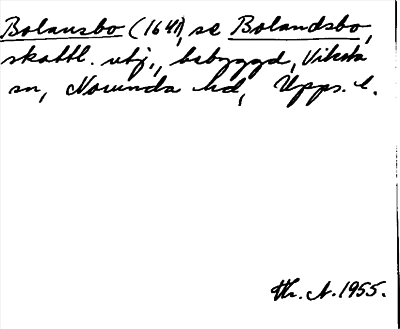 Bolansbo (1641), se Bolandsbo,
skattl. utj., bebyggd, Viksta
sn, Norunda hd, Upps. l.
Th. A. 1955.